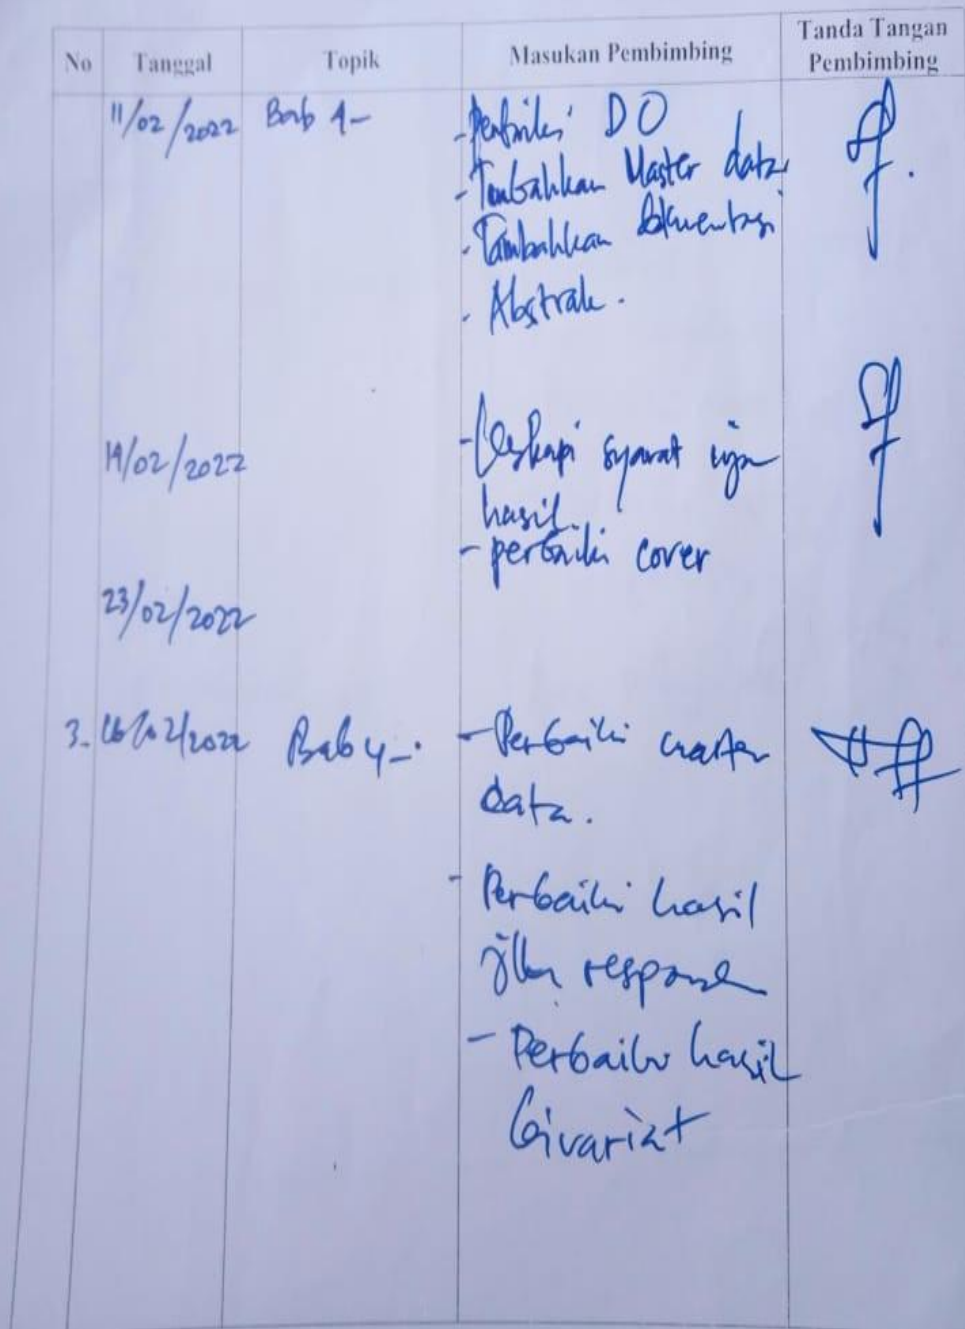 No Tanggal Topik Masukan Pembimbing Tanda Tangan Pembimbing
11/02/2022 Bab 4- - Perbaiki DO
- Tambahkan Master data
- Tambahkan Dokumentasi
- Abstrak.
14/02/2022 - Lengkapi syarat ujian
hasil.
- perbaiki cover
23/02/2022
3. /02/2022 Bab 4-. - Perbaiki master
data.
- Perbaiki hasil
responden
- Perbaiki hasil
bivariat